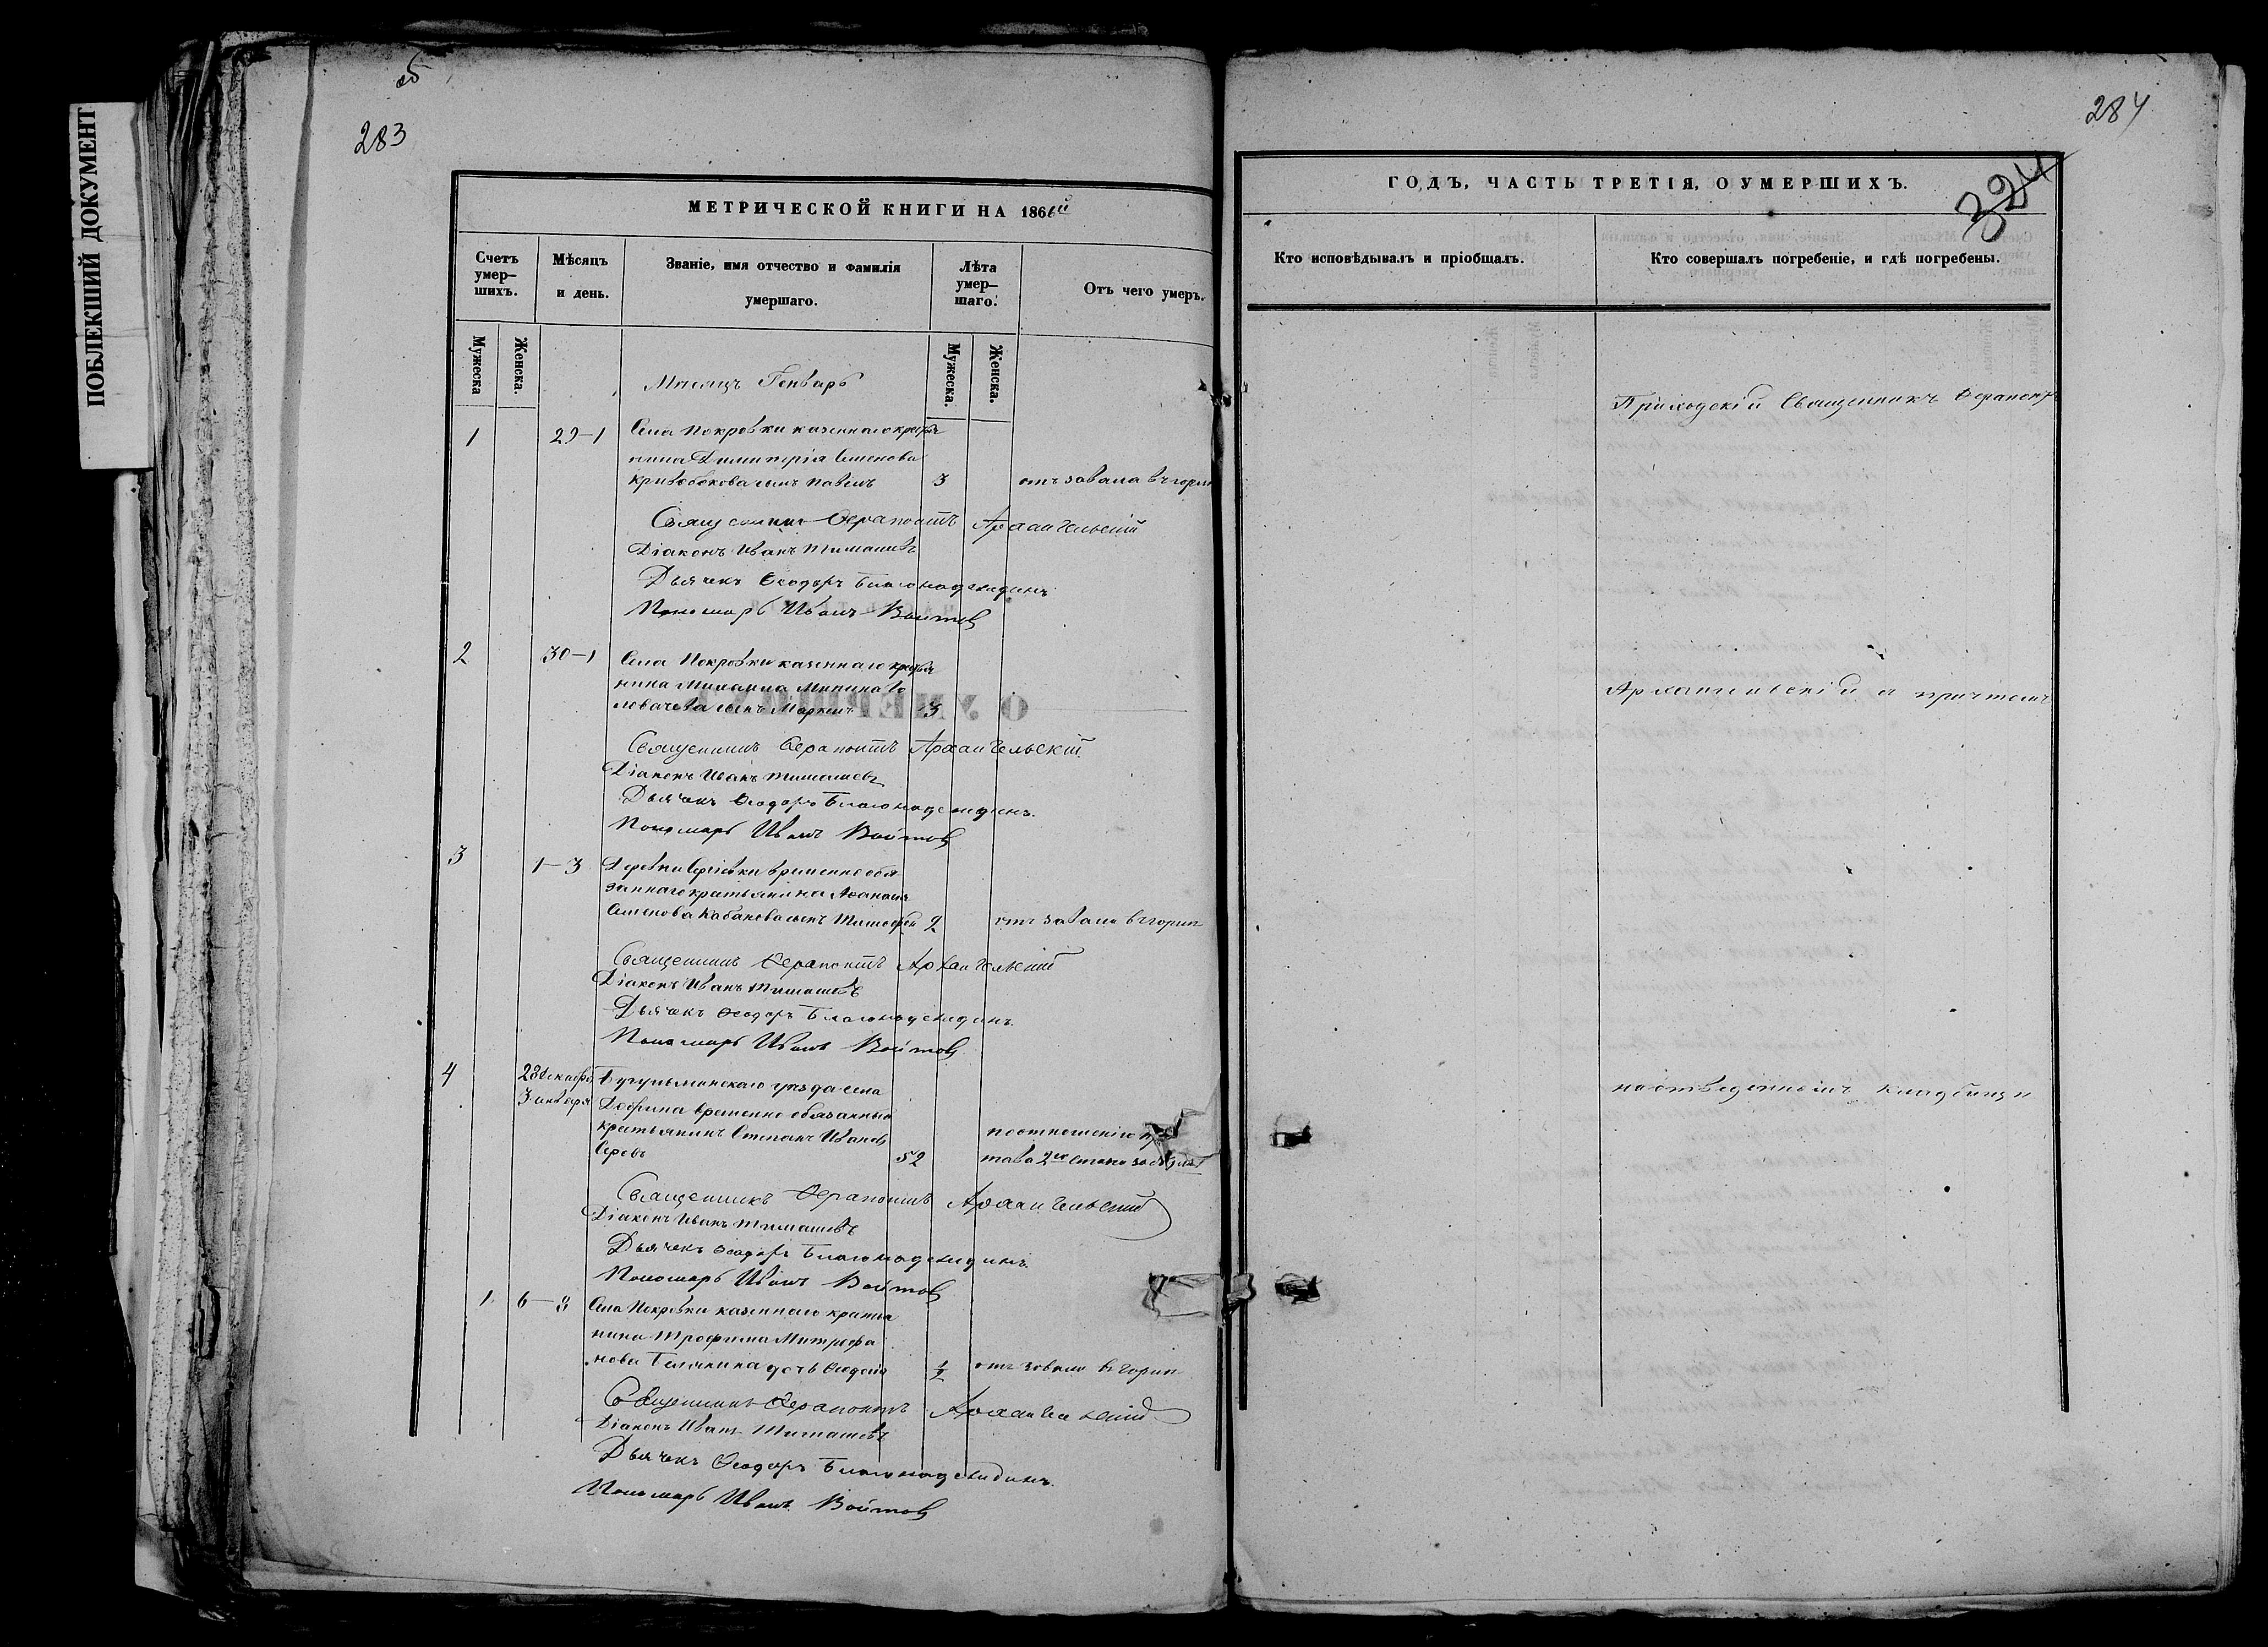 ПОБЛЕКШИЙ ДОКУМЕНТ
283
МЕТРИЧЕСКОЙ КНИГИ НА 186
Счетъ умер-шихъ.
Мѣсяцъ и день.
Званіе, имя отчество и фамилія умершаго.
Лѣта умер-шаго.
Отъ чего умеръ.
Мужеска
Женска.
Мужеска.
Женска.
Мѣсяцъ Генварь
1 29-1 Села Покровки казеннаго кресть
нина Димитрія Семенова
Кривобокова сынъ Павелъ 3 отъ завала въ горлѣ
Священникъ Ѳерапонтъ Архангельскій
Діаконъ Иванъ Тимашевъ
Дьячекъ Ѳеодоръ Благонадеждинъ
Пономарь Иванъ Войтовъ
2 30-1 Села Покровки казеннаго кресть
нина Михаила Минина Го
ловачева сынъ 3
Священникъ Ѳерапонтъ Архангельскій
Діаконъ Иванъ Тимашевъ
Дьячекъ Ѳеодоръ Благонадеждинъ.
Пономарь Иванъ Войтовъ
3 1-3 Деревни временно обя
заннаго крестьянина Аѳанасія
Семенова Кабанова сынъ Тимофей 2 отъ завала въ горлѣ
Священникъ Ѳерапонтъ Архангельскій
Діаконъ Иванъ Тимашевъ
Дьячекъ Ѳеодоръ Благонадеждинъ.
Пономарь Иванъ Войтовъ
4 28 декабр Бугульминскаго уѣзда села
3 января временно обязанный
крестьянинъ Степанъ Ивановъ по отношенію
52 става 2го стана
Священникъ Ѳерапонтъ Архангельскій
Діаконъ Иванъ Тимашевъ
Дьячекъ Ѳеодоръ Благонадеждинъ
Пономарь Иванъ Войтовъ
1 6-8 Села Покровки казеннаго крестья
нина Трофима Митрофа
нова дочь отъ завала въ горлѣ
Священникъ Ѳерапонтъ Архангельскій
Діаконъ Иванъ Тимашевъ
Дьячекъ Ѳеодоръ Благонадеждинъ.
Пономарь Иванъ Войтовъ
284
324
ГОДЪ, ЧАСТЬ ТРЕТІЯ, О УМЕРШИХЪ.
Кто исповѣдывалъ и пріобщалъ.
Кто совершалъ погребеніе, и гдѣ погребены.
Приходскій Священникъ Ѳерапонтъ
Архангельскій с причтомъ
на отведенномъ кладбищи